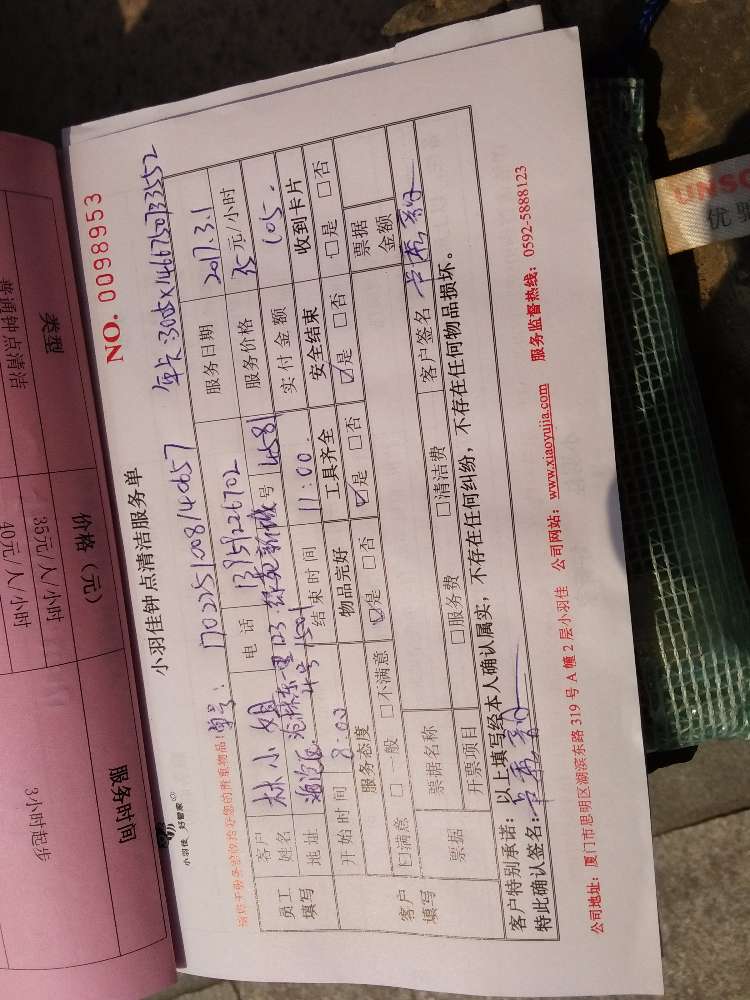 类型
价格（元）
服务时间
普通钟点清洁
35元/人/小时
40元/人/小时
3小时起步
NO. 0098953
小羽佳 好管家
小羽佳钟点清洁服务单
单号: 1702251008140657
年卡
服务日期 2017.3.1
员工填写
客户姓名 林小姐
电话 13959226702
服务价格 35元/小时
地址
实付金额 105.
开始时间 8:00
结束时间 11:00.
客户填写
服务态度 物品完好 工具齐全 安全结束 收到卡片
☑满意 □一般 □不满意 ☑是 □否 ☑是 □否 ☑是 □否 □是 □否
票据
票据名称
票据金额
开票项目 □服务费 □清洁费
客户签名
客户特别承诺：以上填写经本人确认属实，不存在任何纠纷，不存在任何物品损坏。
特此确认签名:
公司地址：厦门市思明区湖滨东路 319 号 A 幢 2 层小羽佳 公司网站：www.xiaoyujia.com 服务监督热线：0592-5888123
UNSO
优